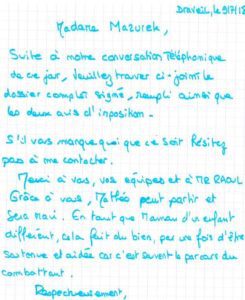 Draveil, le 9/7/18
Madame Mazurek,
Suite à notre conversation Téléphonique
de ce jour, veuillez trouver ci-joint le
dossier complet signé, rempli ainsi que
les deux avis d'imposition.
S'il vous manque quoi que ce soit N'ésitez
pas à me contacter.
Merci à vous, vos équipes et à MR RAOUL
Grâce à vous, Mathéo peut partir et
Sera Ravi. En tant que Maman d'un enfant
différent, cela fait du bien, par une fois d'être
soutenue et aidée car c'est souvent le parcours du
combattant.
Respectueusement,